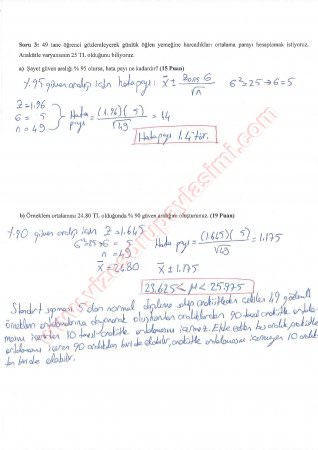 Soru 3: 49 tane öğrenci gözlemleyerek günlük öğlen yemeğine harcadıkları ortalama parayı hesaplamak istiyoruz.
Anakütle varyansının 25 TL olduğunu biliyoruz.
a) Şayet güven aralığı % 95 olursa, hata payı ne kadardır? (15 Puan)
%95 güven aralığı için hata payı: x̄ ± Zα/2 σ / √n   σ²=25 → σ=5
Z=1.96
σ = 5
n = 49
Hata payı = (1.96)(5) / √49 = 1.4
Hata payı 1.4'tür.
b) Örneklem ortalaması 24.80 TL olduğunda % 90 güven aralığını oluşturunuz. (19 Puan)
%90 güven aralığı için Z = 1.645
σ²=25 → σ = 5
n = 49
x̄ = 24.80
Hata payı = (1.645)(5) / √49 = 1.175
x̄ ± 1.175
23.625 < μ < 25.975
Standart sapması 5 olan normal dağılıma sahip anakütleden çekilen 49 gözlemli
örneklem ortalamalarına dayanarak oluşturulan aralıklardan 90 tanesi anakütle ortala-
masını içerirken 10 tanesi anakütle ortalamasını içermez. Elde edilen bu aralık, anakütle
ortalamasını içeren 90 aralıktan biri de olabilir, anakütle ortalamasını içermeyen 10 aralık-
tan biri de olabilir.